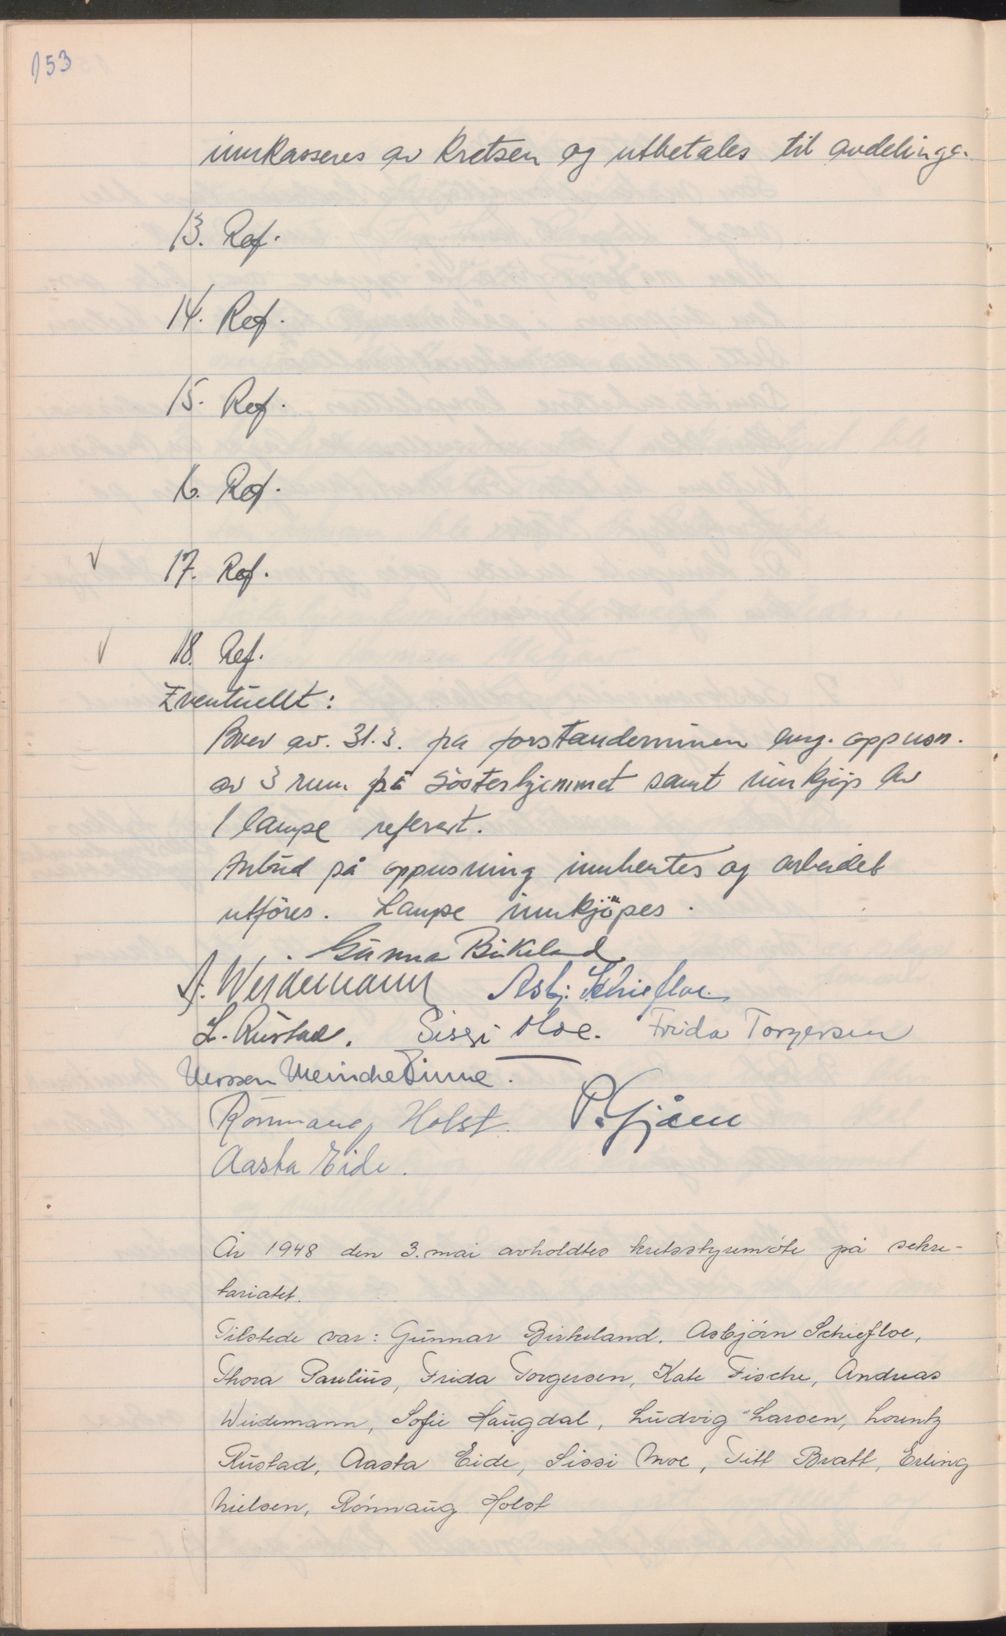 153
innkasseres av kretsen og utbetales til avdelinge.
13. Ref.
14. Ref.
15. Ref.
16. Ref.
√ 17. Ref.
√ 18. Ref.
Eventuellt:
Brev av. 31.3. fra forstanderinnen ang. oppussn.
av 3 rum på Søsterhjemmet samt innkjøp av
1 lampe referert.
Anbud på oppusning innhentes og arbeidet
utföres. Lampe innkjöpes.
Gunnar Birkeland
A. Weidemann Asbj. Schiefloe.
L. Rustad. Sissi Moe. Frida Torgersen
Meincke
Rönnaug Holst. P. Gjåen
Aasta Eide.
År 1948 den 3. mai avholdtes kretsstyremöte på sekre-
tariatet.
Tilstede var: Gunnar Birkeland. Asbjörn Schiefloe,
Thora Paulius, Frida Torgersen, Kate Fische, Andreas
Weidemann, Sofie Haugdal, Ludvig Larsen, Lorentz
Rustad, Aasta Eide, Sissi Moe, Titt Bratt, Erling
Nielsen, Rönnaug Holst